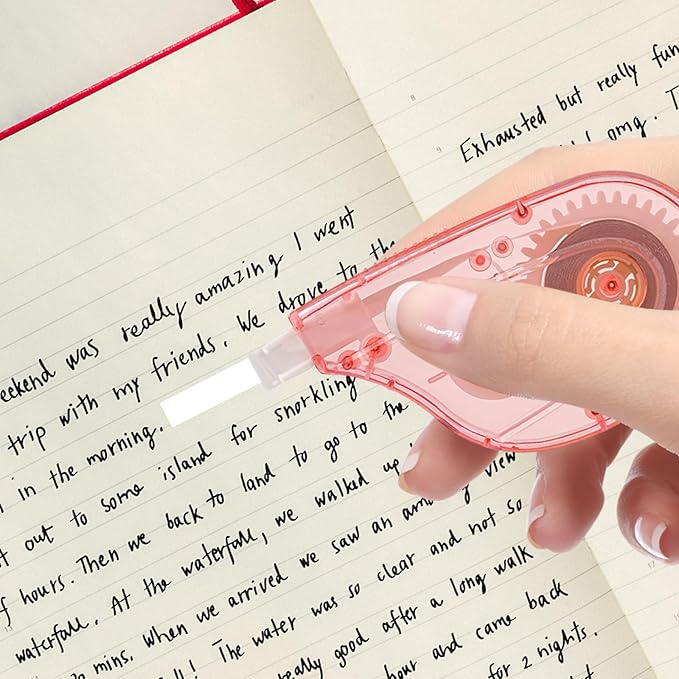 eekend was really amazing I went
trip with my friends. We drove to the
in the morning.
out to some island for snorkling
f hours. Then we back to land to go to the
waterfall. At the waterfall, we walked up
mins. When we arrived we saw an view
The water was so clear and not so
really good after a long walk
hour and came back
for 2 nights.
8
9
Exhausted but really fun
omg.
17